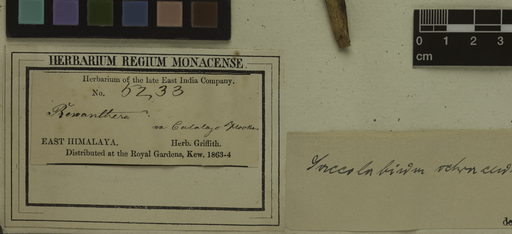 HERBARIUM REGIUM MONACENSE.
Herbarium of the late East India Company.
No. 5233
Renanthera
EAST HIMALAYA. Herb. Griffith.
Distributed at the Royal Gardens, Kew. 1863-4
Saccolabium ochraceum
0 1 2 3
cm